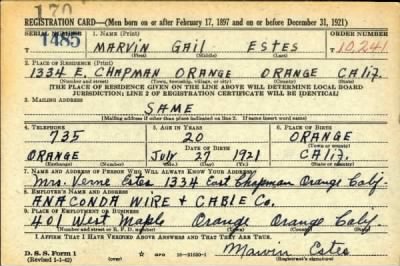 170
REGISTRATION CARD—(Men born on or after February 17, 1897 and on or before December 31, 1921)
SERIAL NUMBER 1. NAME (Print) ORDER NUMBER
1485 MARVIN GAIL ESTES T 10,241
(First) (Middle) (Last)
2. PLACE OF RESIDENCE (Print)
1334 E. CHAPMAN ORANGE ORANGE CALIF.
(Number and street) (Town, township, village, or city) (County) (State)
[THE PLACE OF RESIDENCE GIVEN ON THE LINE ABOVE WILL DETERMINE LOCAL BOARD
JURISDICTION; LINE 2 OF REGISTRATION CERTIFICATE WILL BE IDENTICAL]
3. MAILING ADDRESS
SAME
[Mailing address if other than place indicated on line 2. If same insert word same]
4. TELEPHONE 5. AGE IN YEARS 6. PLACE OF BIRTH
735 20 ORANGE
DATE OF BIRTH (Town or county)
ORANGE July 27 1921 CALIF.
(Exchange) (Number) (Mo.) (Day) (Yr.) (State or country)
7. NAME AND ADDRESS OF PERSON WHO WILL ALWAYS KNOW YOUR ADDRESS
Mrs. Verne Estes 1334 East Chapman Orange Calif.
8. EMPLOYER'S NAME AND ADDRESS
ANACONDA WIRE & CABLE Co.
9. PLACE OF EMPLOYMENT OR BUSINESS
401 West Maple Orange Orange Calif.
(Number and street or R. F. D. number) (Town) (County) (State)
I AFFIRM THAT I HAVE VERIFIED ABOVE ANSWERS AND THAT THEY ARE TRUE.
D. S. S. Form 1
(Revised 1-1-42) (over) GPO 16—21630-1 Marvin Estes